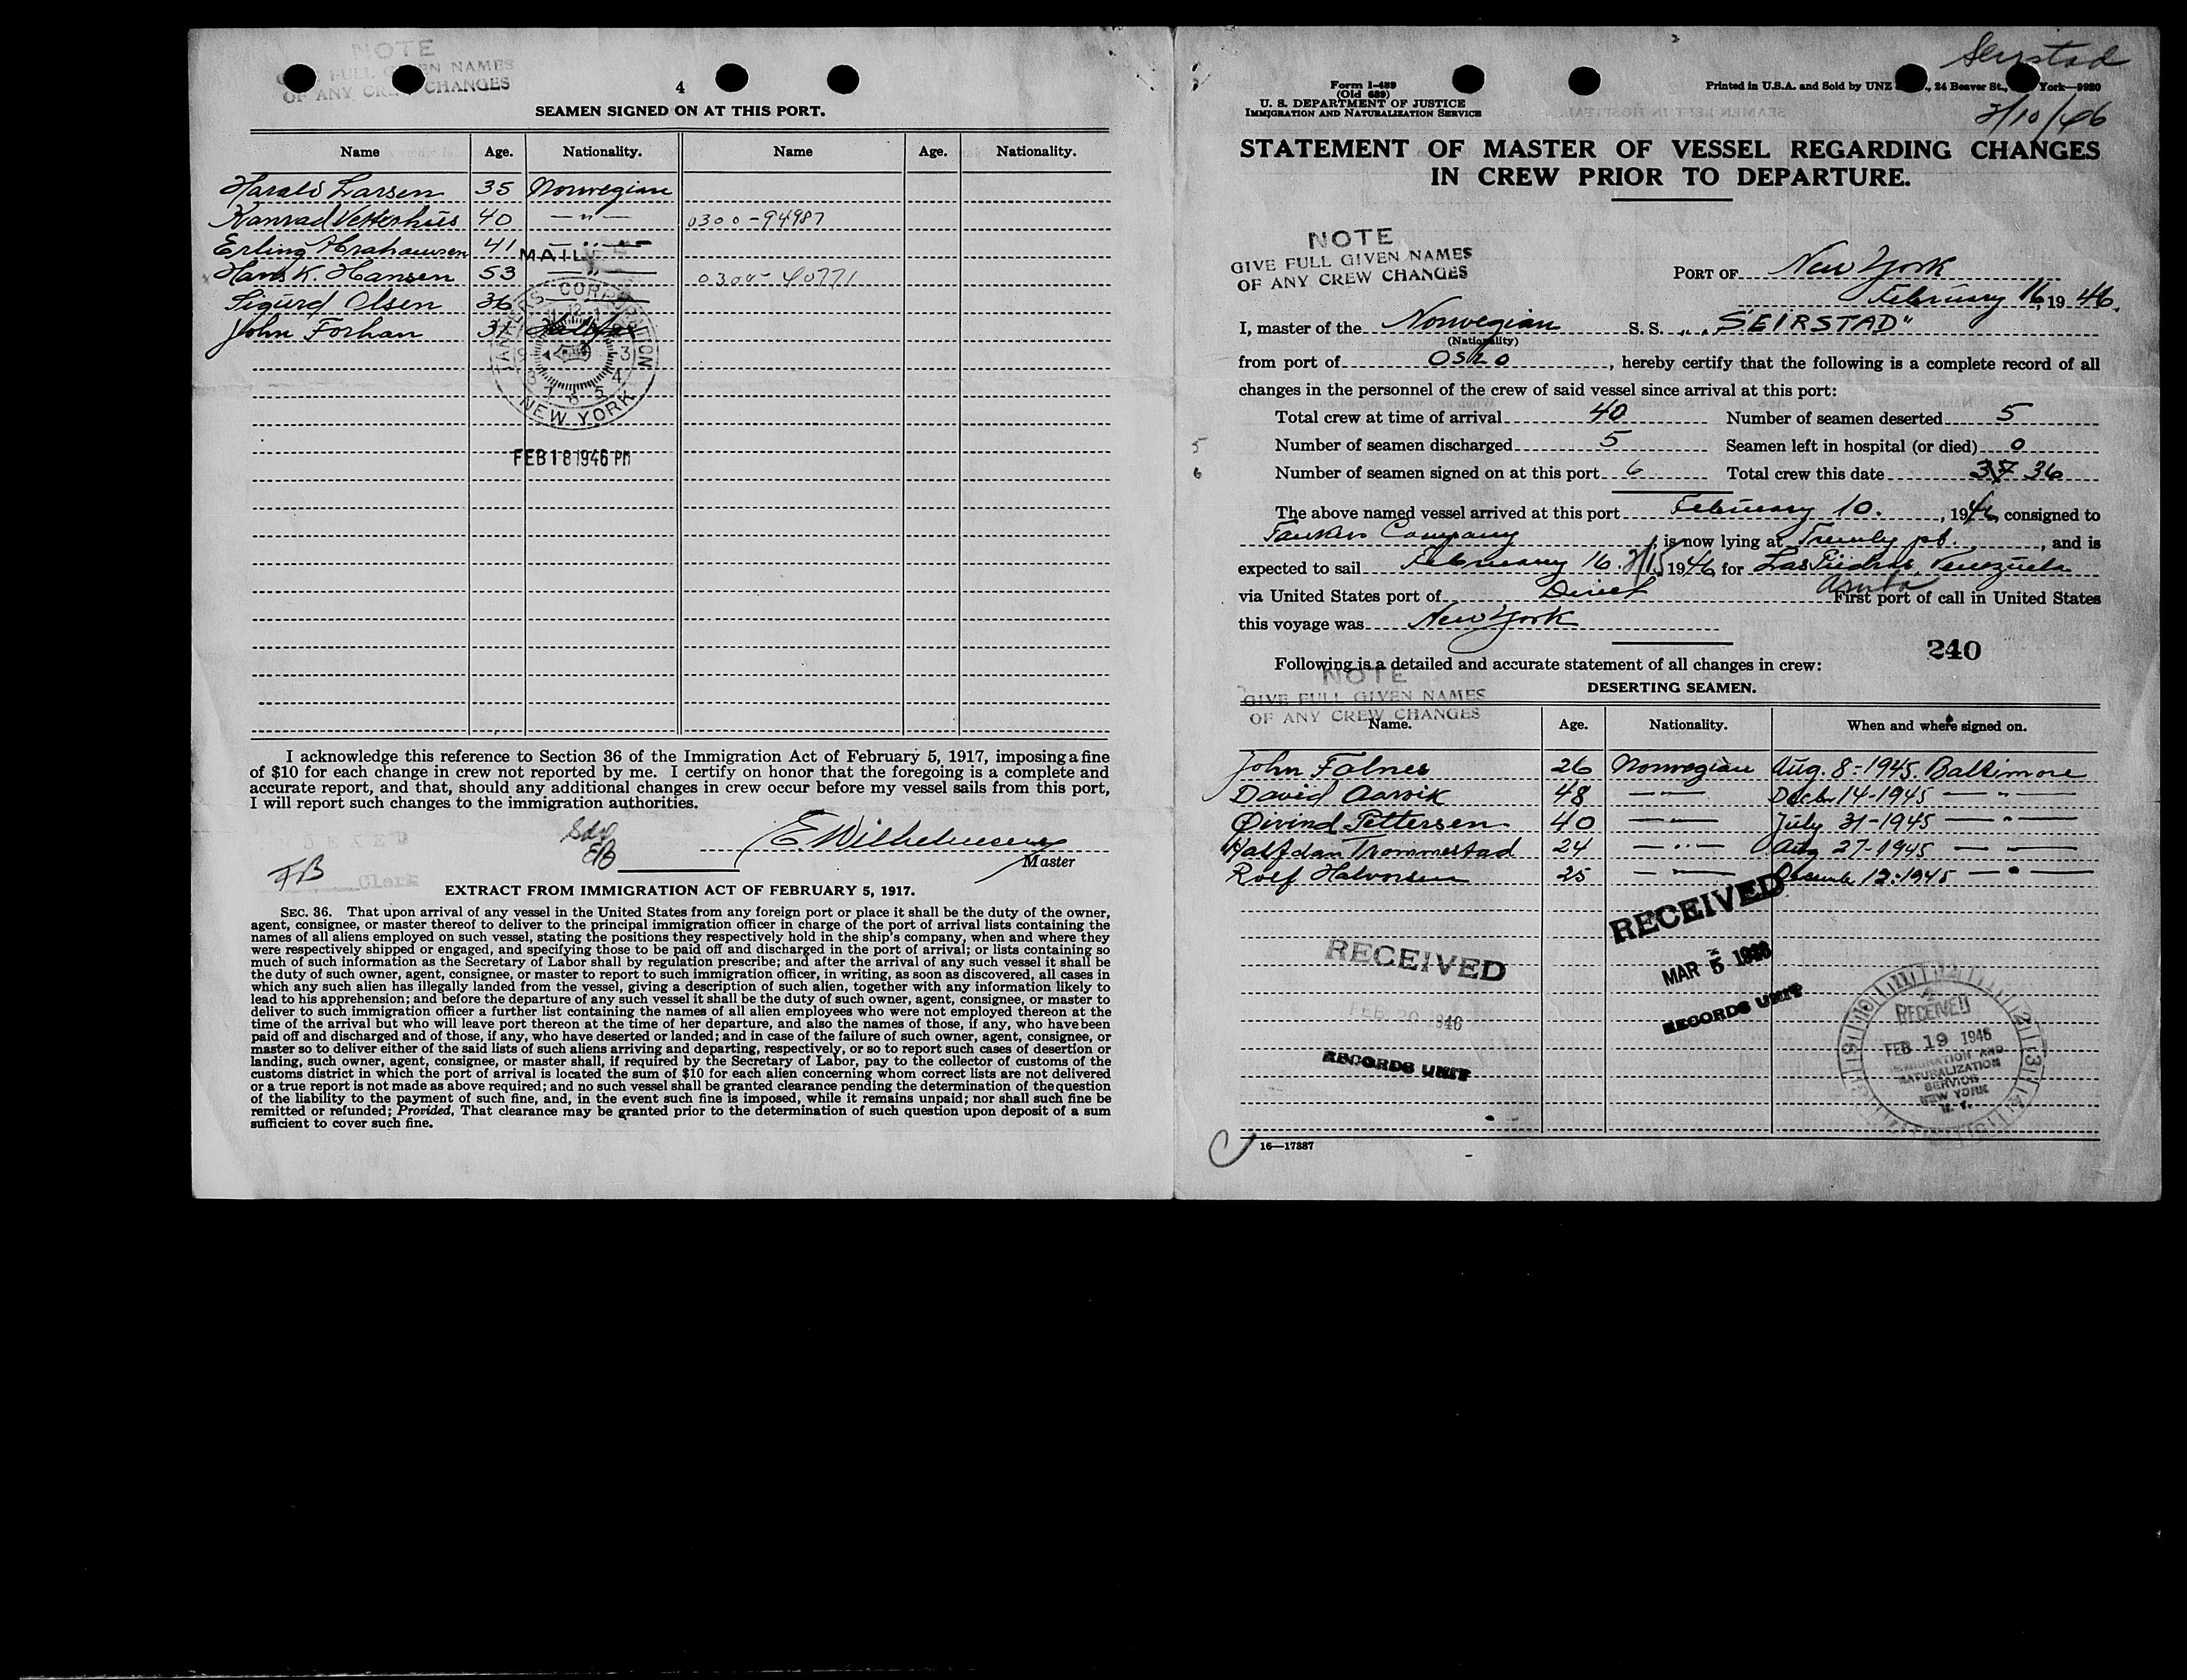 NOTE
GIVE FULL GIVEN NAMES
OF ANY CREW CHANGES
4
SEAMEN SIGNED ON AT THIS PORT.
Name Age. Nationality. Name Age. Nationality.
Harald Larsen 35 Norwegian
Konrad Vetterhus 40 — " — 0300-94987
Erling Abrahamsen 41 — " —
Hans K. Hansen 53 — " — 0300-40771
Sigurd Olsen 36
John Forhan 37 Halifax
MAILED
TANKERS CORPORATION
NEW YORK
FEB 18 1946 PM
I acknowledge this reference to Section 36 of the Immigration Act of February 5, 1917, imposing a fine
of $10 for each change in crew not reported by me. I certify on honor that the foregoing is a complete and
accurate report, and that, should any additional changes in crew occur before my vessel sails from this port,
I will report such changes to the immigration authorities.
INDEXED
E. Wilhelmsen
Master
FB Clerk
EB
EXTRACT FROM IMMIGRATION ACT OF FEBRUARY 5, 1917.
SEC. 36. That upon arrival of any vessel in the United States from any foreign port or place it shall be the duty of the owner,
agent, consignee, or master thereof to deliver to the principal immigration officer in charge of the port of arrival lists containing the
names of all aliens employed on such vessel, stating the positions they respectively hold in the ship's company, when and where they
were respectively shipped or engaged, and specifying those to be paid off and discharged in the port of arrival; or lists containing so
much of such information as the Secretary of Labor shall by regulation prescribe; and after the arrival of any such vessel it shall be
the duty of such owner, agent, consignee, or master to report to such immigration officer, in writing, as soon as discovered, all cases in
which any such alien has illegally landed from the vessel, giving a description of such alien, together with any information likely to
lead to his apprehension; and before the departure of any such vessel it shall be the duty of such owner, agent, consignee, or master to
deliver to such immigration officer a further list containing the names of all alien employees who were not employed thereon at the
time of the arrival but who will leave port thereon at the time of her departure, and also the names of those, if any, who have been
paid off and discharged and of those, if any, who have deserted or landed; and in case of the failure of such owner, agent, consignee, or
master so to deliver either of the said lists of such aliens arriving and departing, respectively, or so to report such cases of desertion or
landing, such owner, agent, consignee, or master shall, if required by the Secretary of Labor, pay to the collector of customs of the
customs district in which the port of arrival is located the sum of $10 for each alien concerning whom correct lists are not delivered
or a true report is not made as above required; and no such vessel shall be granted clearance pending the determination of the question
of the liability to the payment of such fine, and, in the event such fine is imposed, while it remains unpaid; nor shall such fine be
remitted or refunded; Provided, That clearance may be granted prior to the determination of such question upon deposit of a sum
sufficient to cover such fine.
Seirstad
Form I-489
(Old 689)
U. S. DEPARTMENT OF JUSTICE
IMMIGRATION AND NATURALIZATION SERVICE
Printed in U.S.A. and Sold by UNZ 24 Beaver St., York—9920
2/10/46
STATEMENT OF MASTER OF VESSEL REGARDING CHANGES
IN CREW PRIOR TO DEPARTURE.
NOTE
GIVE FULL GIVEN NAMES
OF ANY CREW CHANGES
PORT OF New York
February 16, 1946.
I, master of the Norwegian S. S. "SEIRSTAD"
(Nationality)
from port of Oslo, hereby certify that the following is a complete record of all
changes in the personnel of the crew of said vessel since arrival at this port:
Total crew at time of arrival 40 Number of seamen deserted 5
5 Number of seamen discharged 5 Seamen left in hospital (or died) 0
6 Number of seamen signed on at this port 6 Total crew this date 37 36
The above named vessel arrived at this port February 10., 1946, consigned to
Tankers Company, is now lying at Tremly pt., and is
expected to sail February 16. 2/15 1946, for Las Piedras, Venezuela
Aruba
via United States port of Direct First port of call in United States
this voyage was New York
240
Following is a detailed and accurate statement of all changes in crew:
DESERTING SEAMEN.
NOTE
GIVE FULL GIVEN NAMES
OF ANY CREW CHANGES
Name. Age. Nationality. When and where signed on.
John Falnes 26 Norwegian Aug. 8-1945. Baltimore
David Aarvik 48 — " — Decbr 14-1945 — " —
Øivind Pettersen 40 — " — July 31-1945 — " —
Halfdan Trommestad 24 — " — Aug 27-1945 — " —
Rolf Halvorsen 25 — " — Decembr 12-1945 — " —
RECEIVED
MAR 5 1946
RECORDS UNIT
RECEIVED
FEB 20 1946
RECORDS UNIT
RECEIVED
FEB 19 1946
IMMIGRATION AND
NATURALIZATION
SERVICE
NEW YORK
N. Y.
16—17887